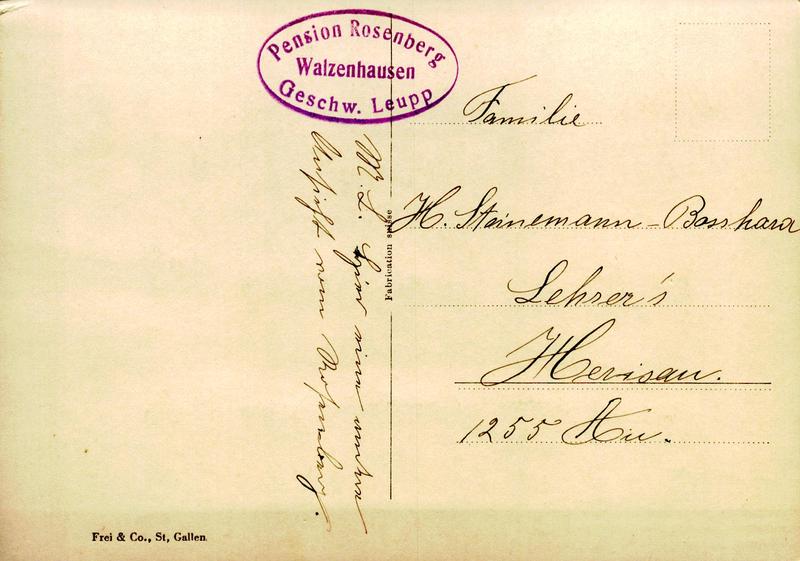 Pension Rosenberg
Walzenhausen
Geschw. Leupp
M. L. Hier eine andere
Ansicht vom Rosenberg.
Fabrication suisse
Familie
H. Steinemann-Bosshard
Lehrer's
Herisau.
1255 Hü.
Frei & Co., St, Gallen.